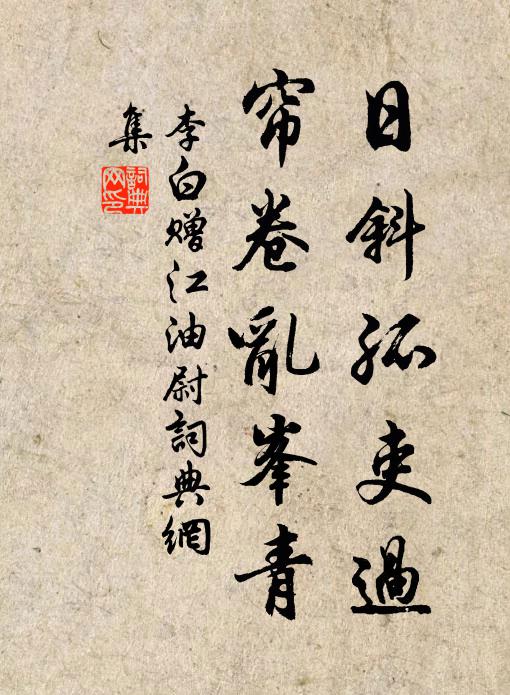 日斜孤吏過
帘卷亂峯青
李白贈江油尉詞典網
集
詞典
网印